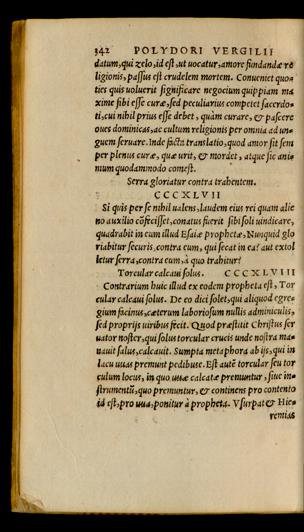 342 POLYDORI VERGILII
datum, qui zelo, id est, ut uocatur, amore fundandæ re
ligionis, passus est crudelem mortem. Conueniet quo=
ties quis uoluerit significare negocium quippiam ma
xime sibi esse curæ, sed peculiarius competet sacerdo=
ti, cui nihil prius esse debet, quàm curare, & pascere
oues dominicas, ac cultum religionis per omnia ad un=
guem seruare. Inde facta translatio, quod amor sit sem
per plenus curæ, quæ urit, & mordet, atque sic ani=
mum quodammodo comest.
Serra gloriatur contra trahentem.
CCCXLVII
Si quis per se nihil ualens, laudem eius rei quam alie
no auxilio cõfecisset, conatus fuerit sibi soli uindicare,
quadrabit in eum illud Esaiæ prophetæ, Nunquid glo
riabitur securis, contra eum, qui secat in ea? aut extol
letur serra, contra eum, à quo trahitur?
Torcular calcaui solus. CCCXLVIII
Contrarium huic illud ex eodem propheta est, Tor
cular calcaui solus. De eo dici solet, qui aliquod egre=
gium facinus, cæterum laboriosum nullis adminiculis,
sed proprijs uiribus fecit. Quod præstitit Christus ser
uator noster, qui solus torcular crucis unde nostra ma=
nauit salus, calcauit. Sumpta metaphora ab ijs, qui in
lacu uuas premunt pedibus. Est autẽ torcular seu tor
culum locus, in quo uuæ calcatæ premuntur, siue in=
strumentũ, quo premuntur, & continens pro contento
id est, pro uua, ponitur à propheta. Vsurpat & Hie=
remias